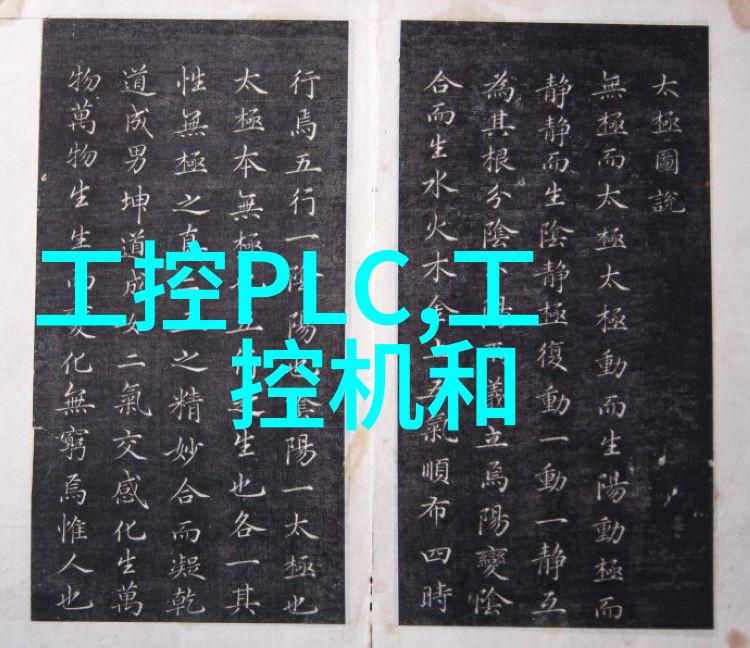 工控PLC,工
控机和
太極圖說
無極而太極太極動而生陽動極而
静静而生陰静極復動一動一静互
為其根分陰分陽兩儀立焉陽變陰
合而生水火木金土五氣順布四時
行焉五行一陰陽也陰陽一太極也
太極本無極也五行之生也各一其
性無極之真二五之精妙合而凝乾
道成男坤道成女二氣交感化生萬
物萬物生生而變化無窮焉惟人也